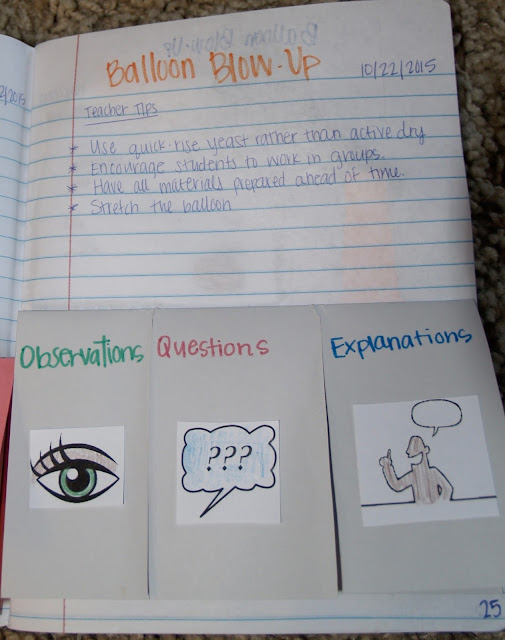 Balloon Blow-Up
10/22/2015
Teacher Tips
* Use quick-rise yeast rather than active dry
* Encourage students to work in groups.
* Have all materials prepared ahead of time.
* Stretch the balloon
Observations
Questions
Explanations
???
25